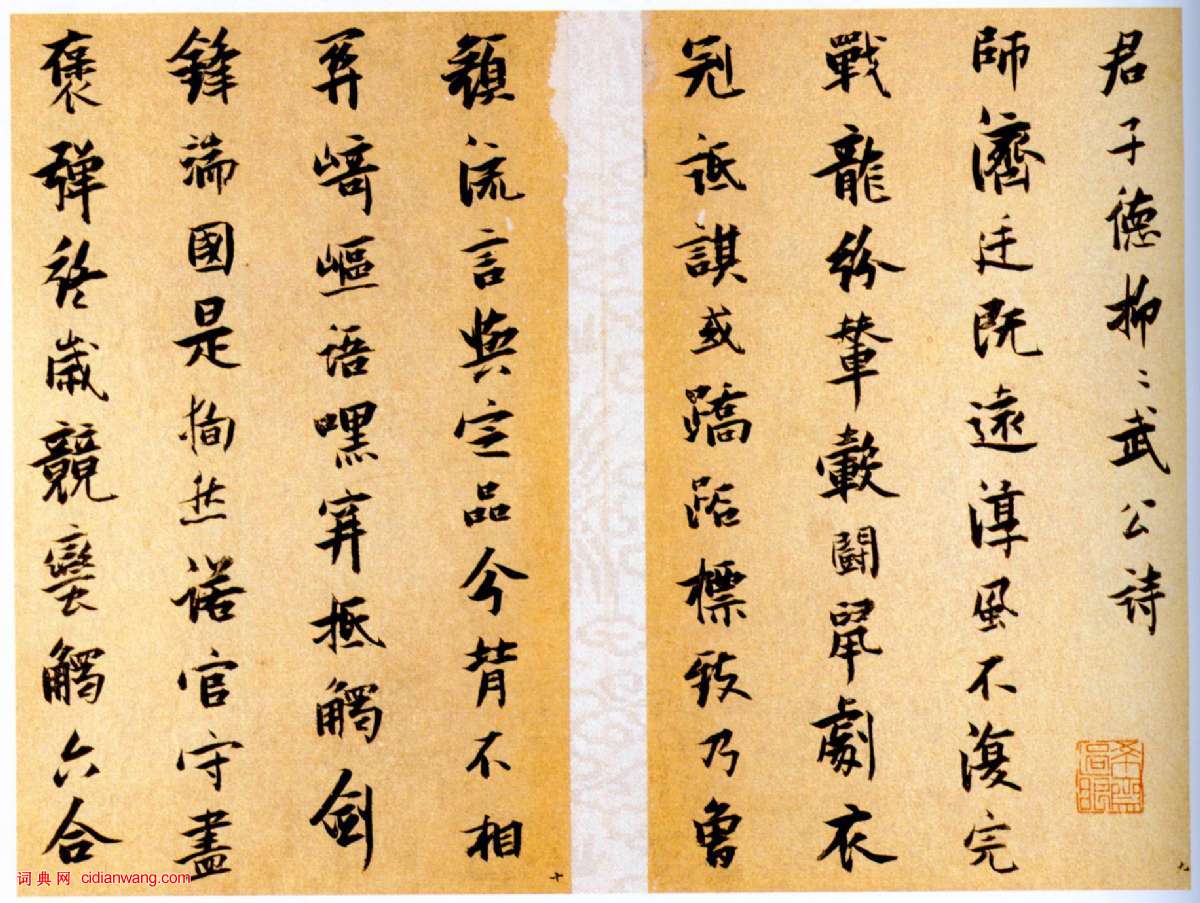 君子德抑〻武公詩
師濟廷既遠淳風不復完
戰龍紛輦轂鬪鼠劇衣
冠詆諆或蹻跖標致乃曾
九
顏流言與定品今昔不相
關崎嶇語嘿穽抵觸劍
鋒端國是徇然諾官守盡
褒彈終歲競蠻觸六合
十
词典网 cidianwang.com